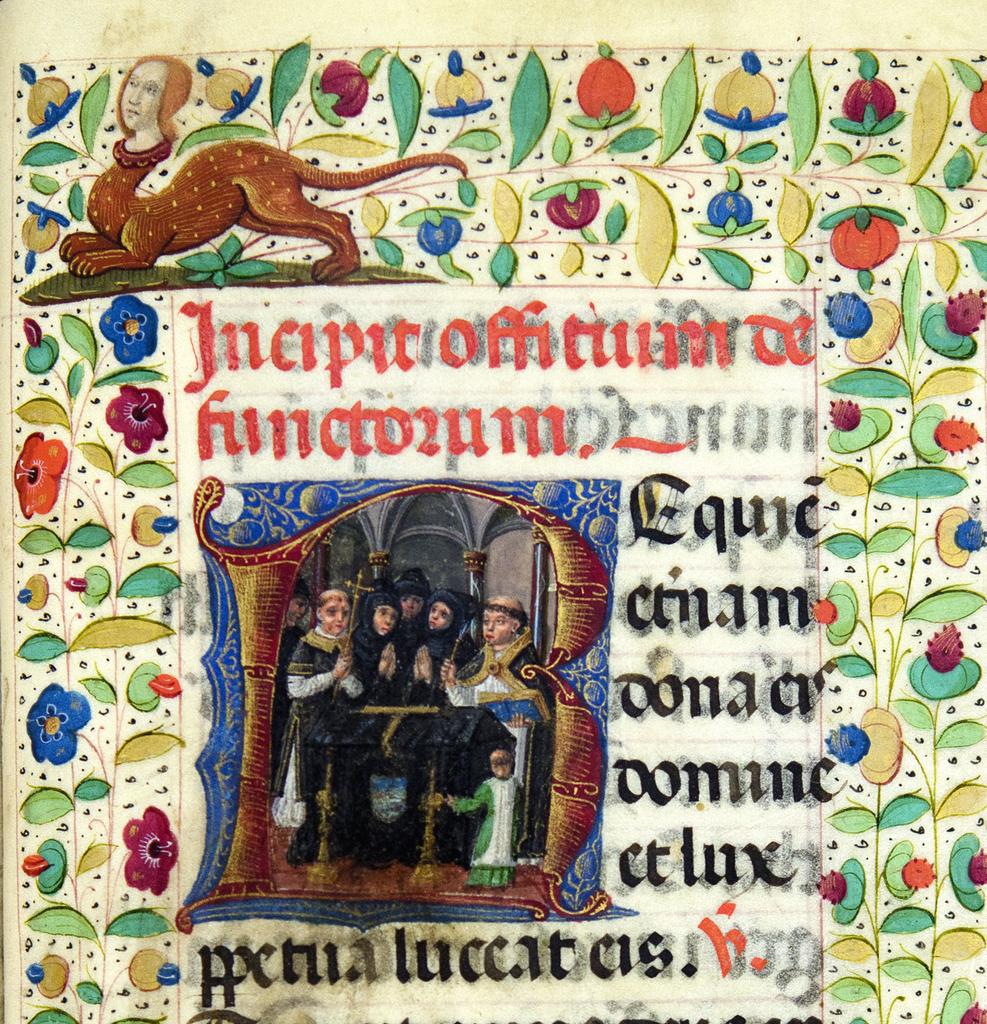 Incipit offitium de
functorum.
REquiē
etnam
dona eis
domine
et lux
ppetua luceat eis. ℟.